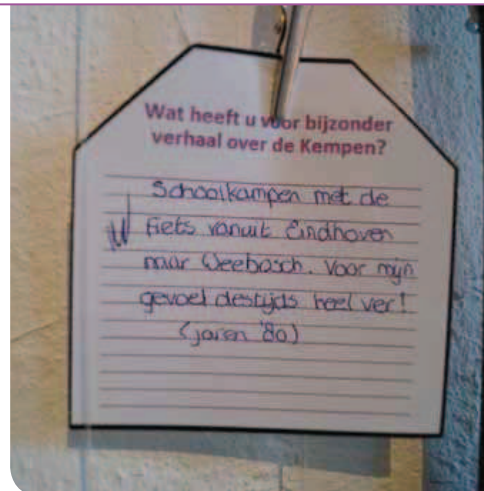 Wat heeft u voor bijzonder
verhaal over de Kempen?
Schoolkampen met de
fiets vanuit Eindhoven
naar Weebosch. Voor mijn
gevoel destijds heel ver!
(jaren '80)